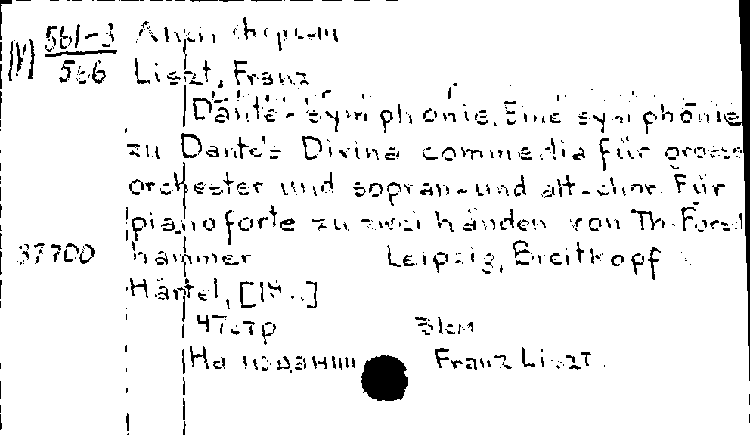 561-3
566
Liszt, Franz
Dante-symphonie. Eine symphonie
zu Dante's Divina commedia für grosse
orchester und sopran-und alt-chor. Für
pianoforte zu zwei händen von Th. Forch
37700 hammer Leipzig, Breitkopf
Härtel, [18..]
47стр 3 экм
На издании Franz Liszt.